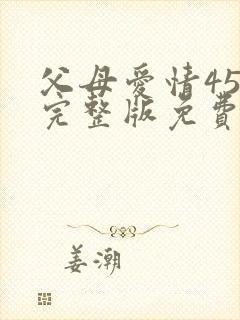 父母爱情45
完整版免费
姜潮